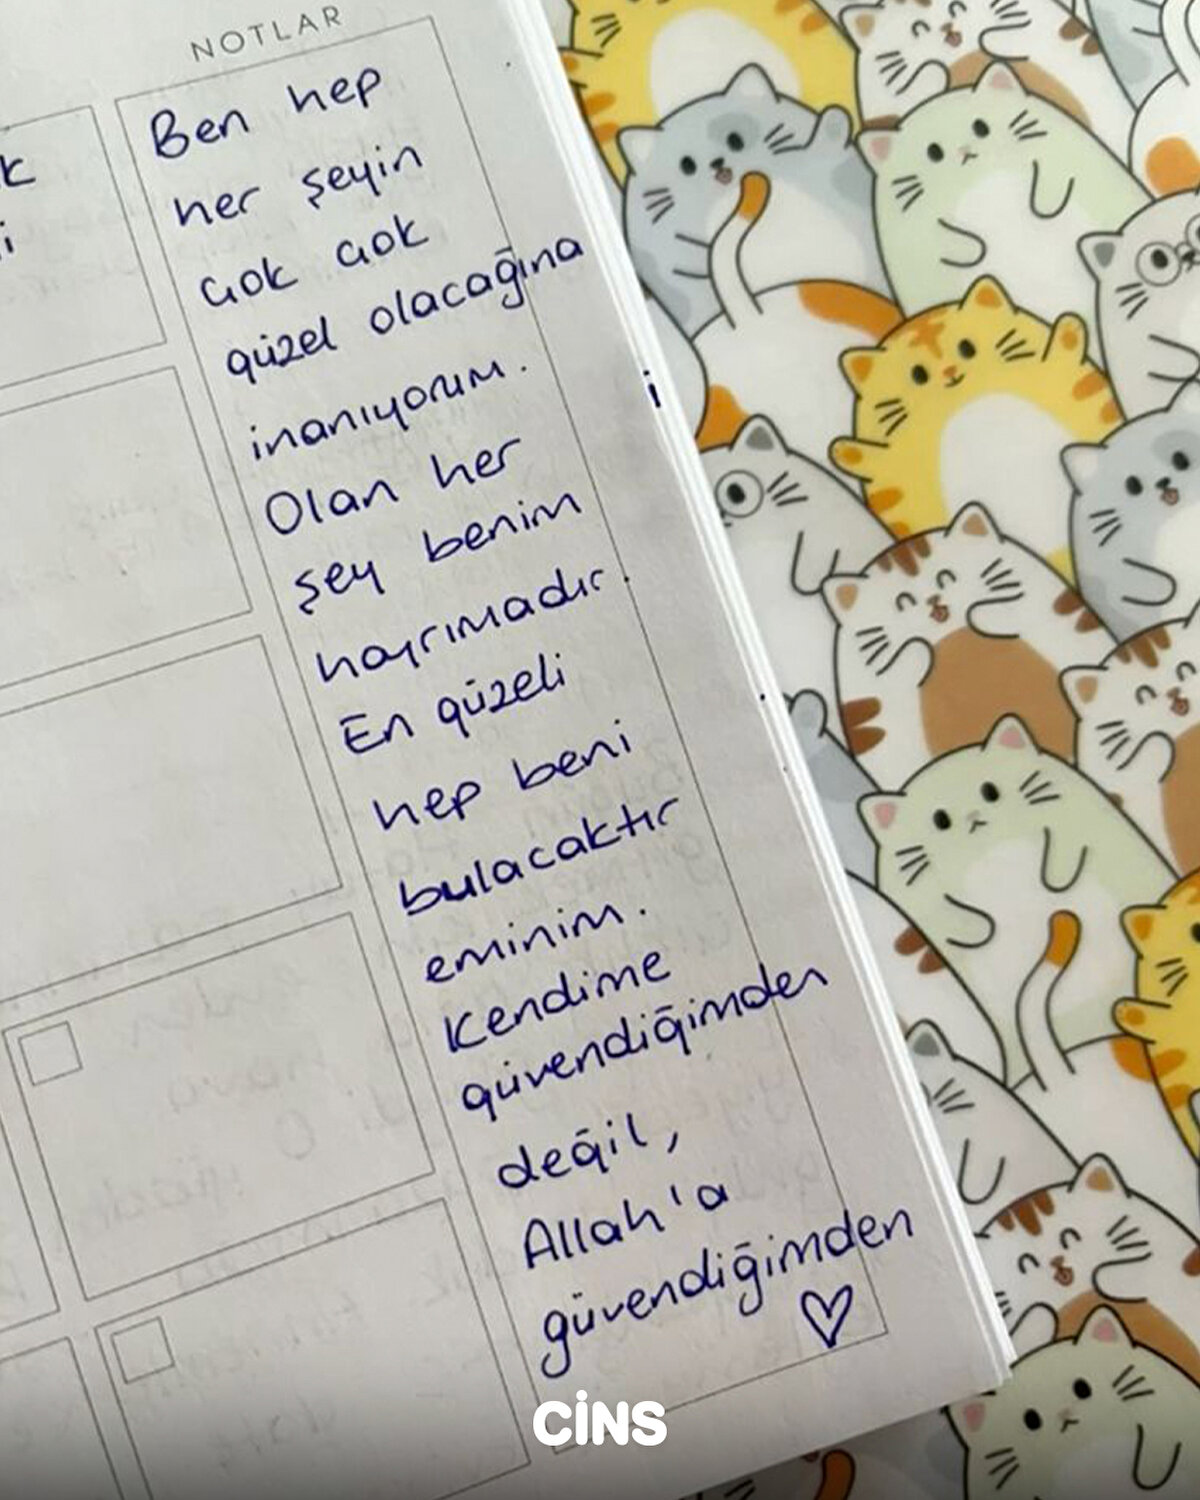 NOTLAR
Ben hep
her şeyin
çok çok
güzel olacağına
inanıyorum.
Olan her
şey benim
hayrımadır.
En güzeli
hep beni
bulacaktır
eminim.
Kendime
güvendiğimden
değil,
Allah'a
güvendiğimden
♡
k
i
i
CİNS